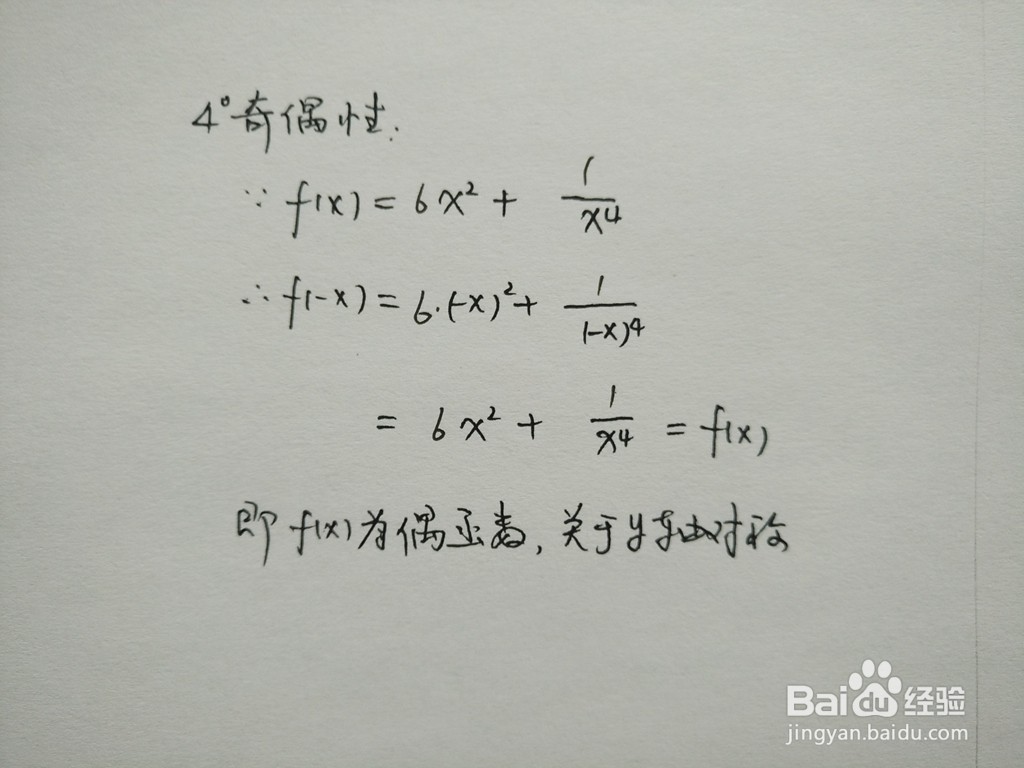 4°奇偶性.
∵ f(x) = 6x² + 1/x⁴
∴ f(-x) = 6·(-x)² + 1/(-x)⁴
= 6x² + 1/x⁴ = f(x),
即 f(x) 为偶函数, 关于y轴对称
Bai du 经验
jingyan.baidu.com